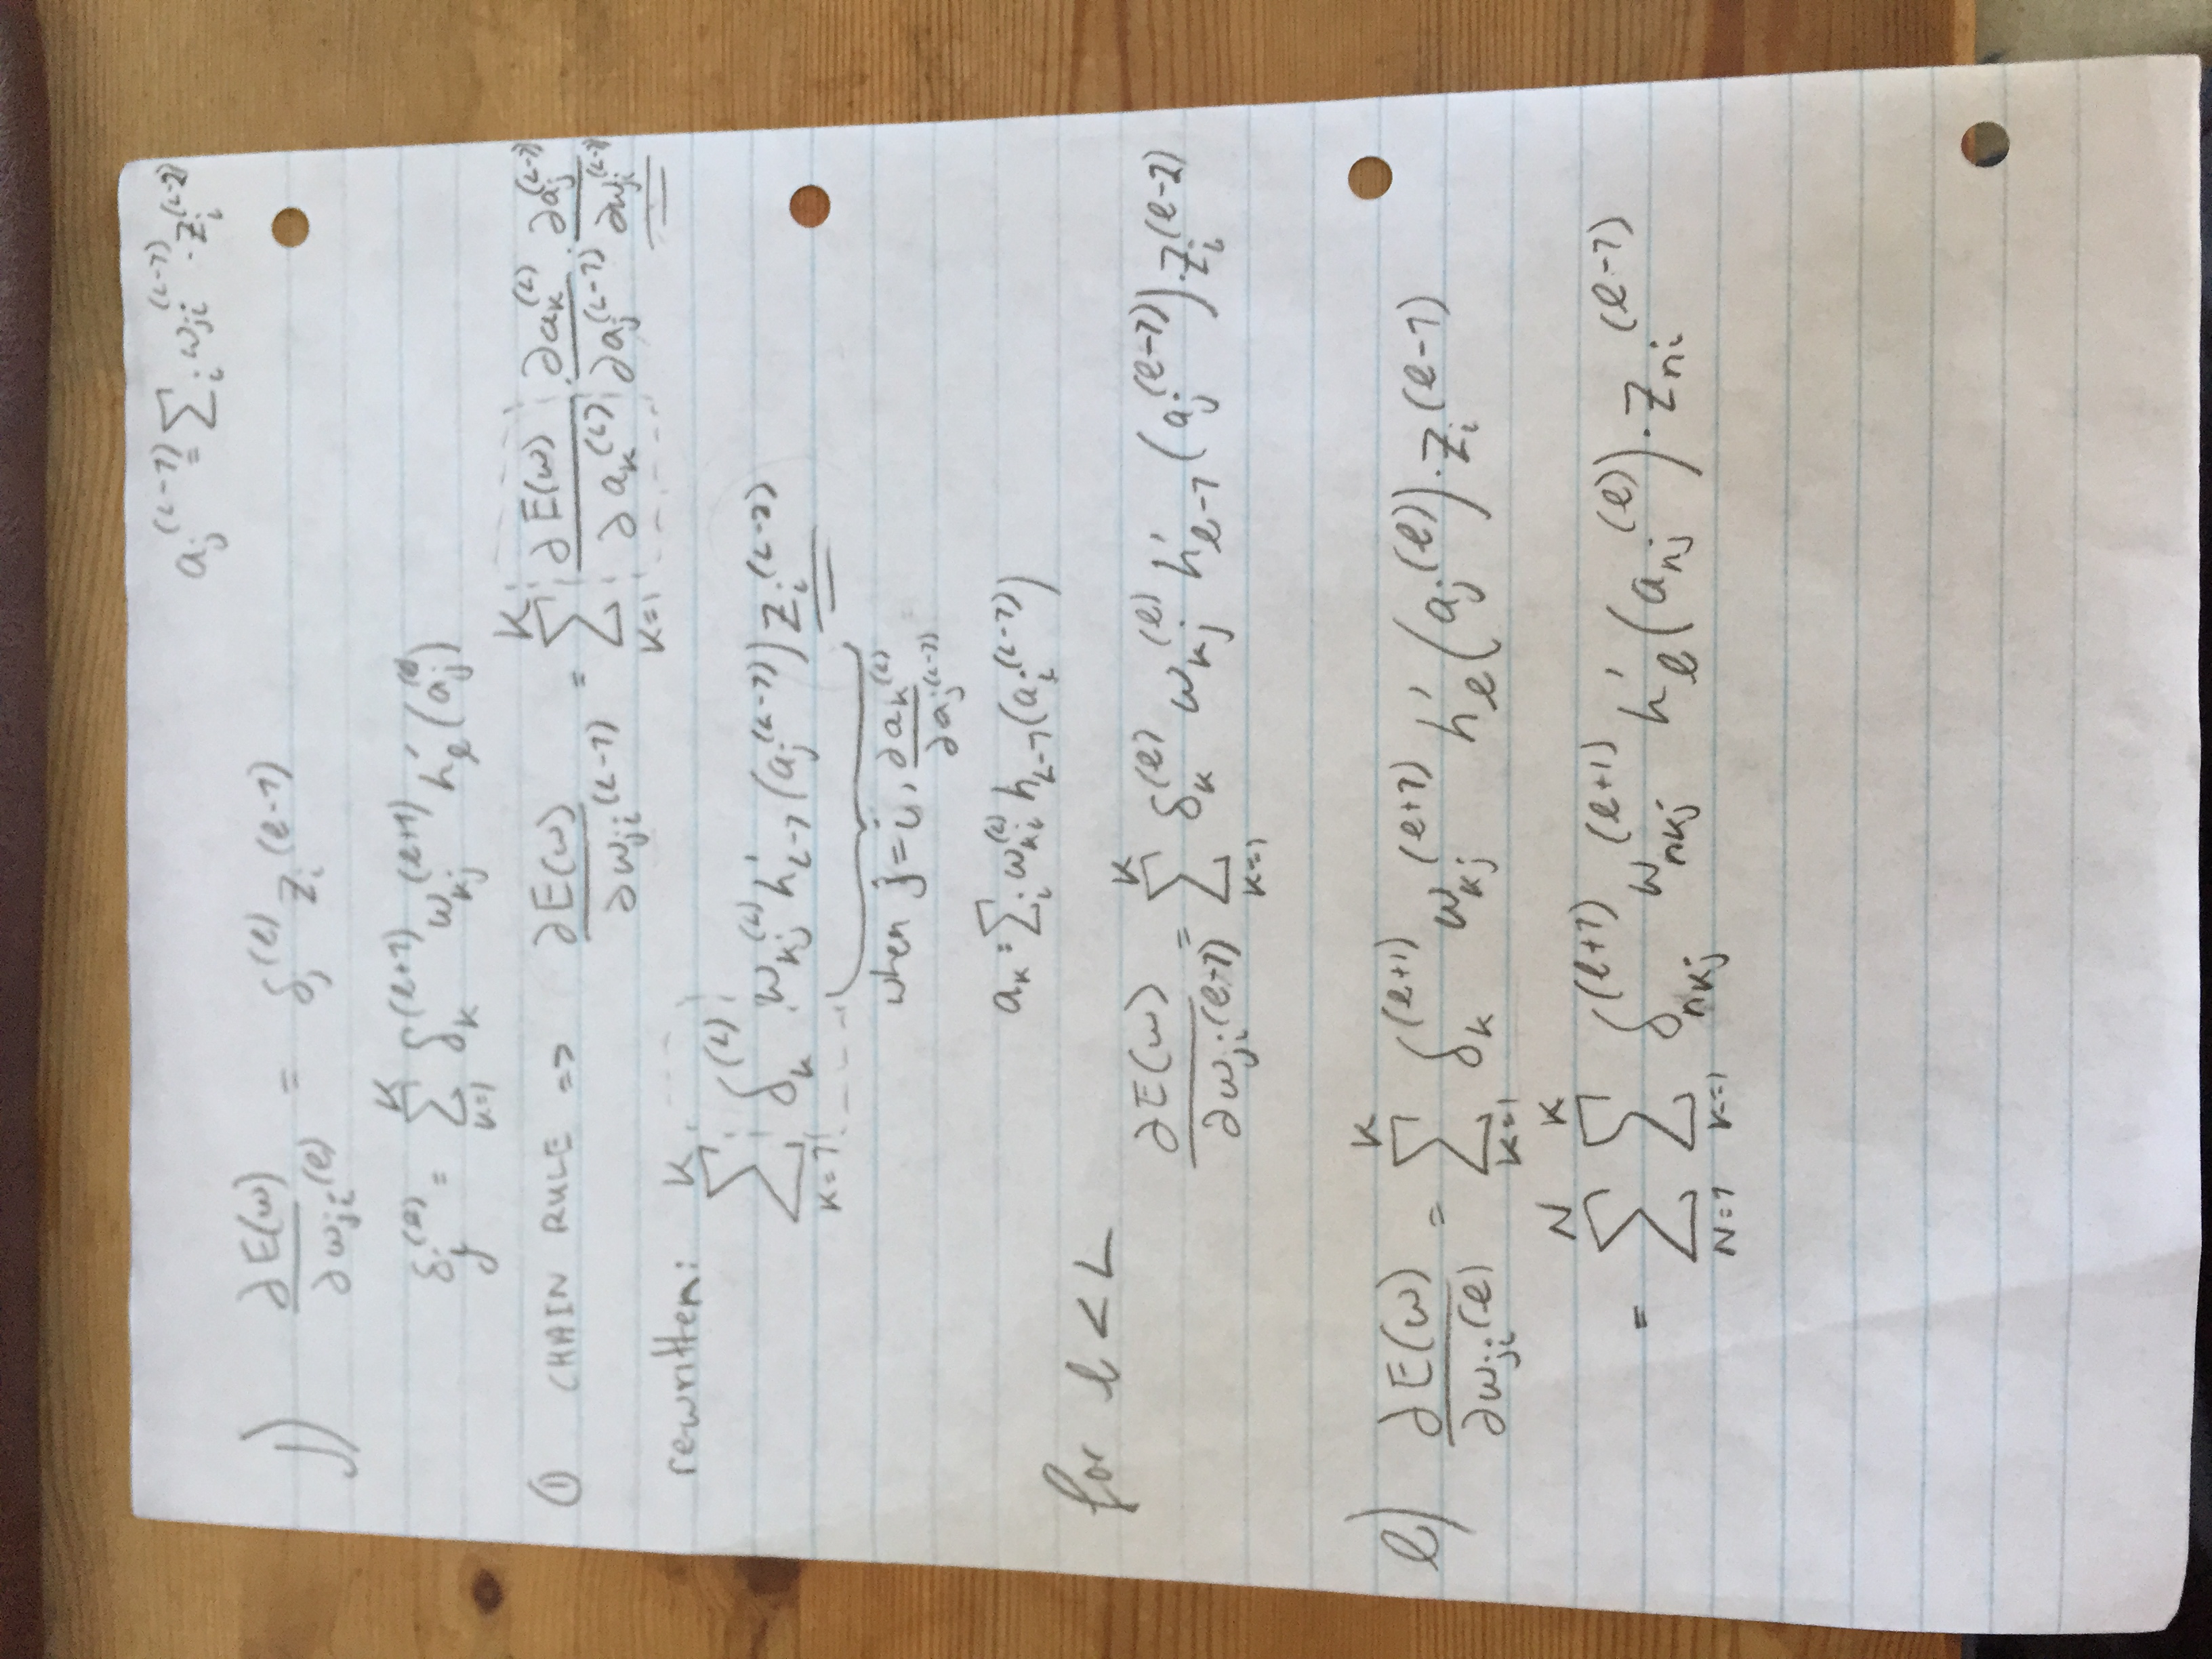 a_j^(L-1) = Σ_i w_ji^(L-1) · z_i^(L-2)
j) ∂E(w)/∂w_ji^(l) = δ_j^(l) z_i^(l-1)
δ_j^(l) = Σ_{k=1}^K δ_k^(l+1) w_kj^(l+1) h'_l(a_j^(l))
① CHAIN RULE => ∂E(w)/∂w_ji^(L-1) = Σ_{K=1}^K ∂E(w)/∂a_k^(L) · ∂a_k^(L)/∂a_j^(L-1) · ∂a_j^(L-1)/∂w_ji^(L-1)
rewritten: Σ_{K=1}^K δ_k^(L) w_kj^(L) h'_{L-1}(a_j^(L-1)) z_i^(L-2)
when j=i, ∂a_k^(L)/∂a_j^(L-1)
a_k = Σ_i w_ki^(L) h_{L-1}(a_i^(L-1))
for l < L
∂E(w)/∂w_ji^(l-1) = Σ_{k=1}^K δ_k^(l) w_kj^(l) h'_{l-1}(a_j^(l-1)) · z_i^(l-2)
l) ∂E(w)/∂w_ji^(l) = Σ_{k=1}^K δ_k^(l+1) w_kj^(l+1) h'_l(a_j^(l)) · z_i^(l-1)
= Σ_{N=1}^N Σ_{k=1}^K δ_nkj^(l+1) w_nkj^(l+1) h'_l(a_nj^(l)) · z_ni^(l-1)